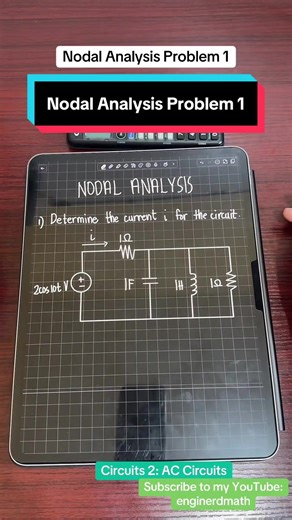 Nodal Analysis Problem 1
Nodal Analysis Problem 1
NODAL ANALYSIS
1) Determine the current i for the circuit.
i
1Ω
2cos10t V
+
-
1F
1H
1Ω
Circuits 2: AC Circuits
Subscribe to my YouTube:
enginerdmath